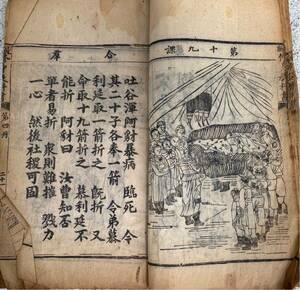 第十九課
合羣
吐谷渾阿豺暴病 臨死 令
其二十子各奉一箭 令弟慕
利延取一箭折之 既折 又
命取十九箭折之 慕利延不
能折 阿豺曰 汝曹知否
單者易折 衆則難摧 戮力
一心 然後社稷可固
第四冊
二十